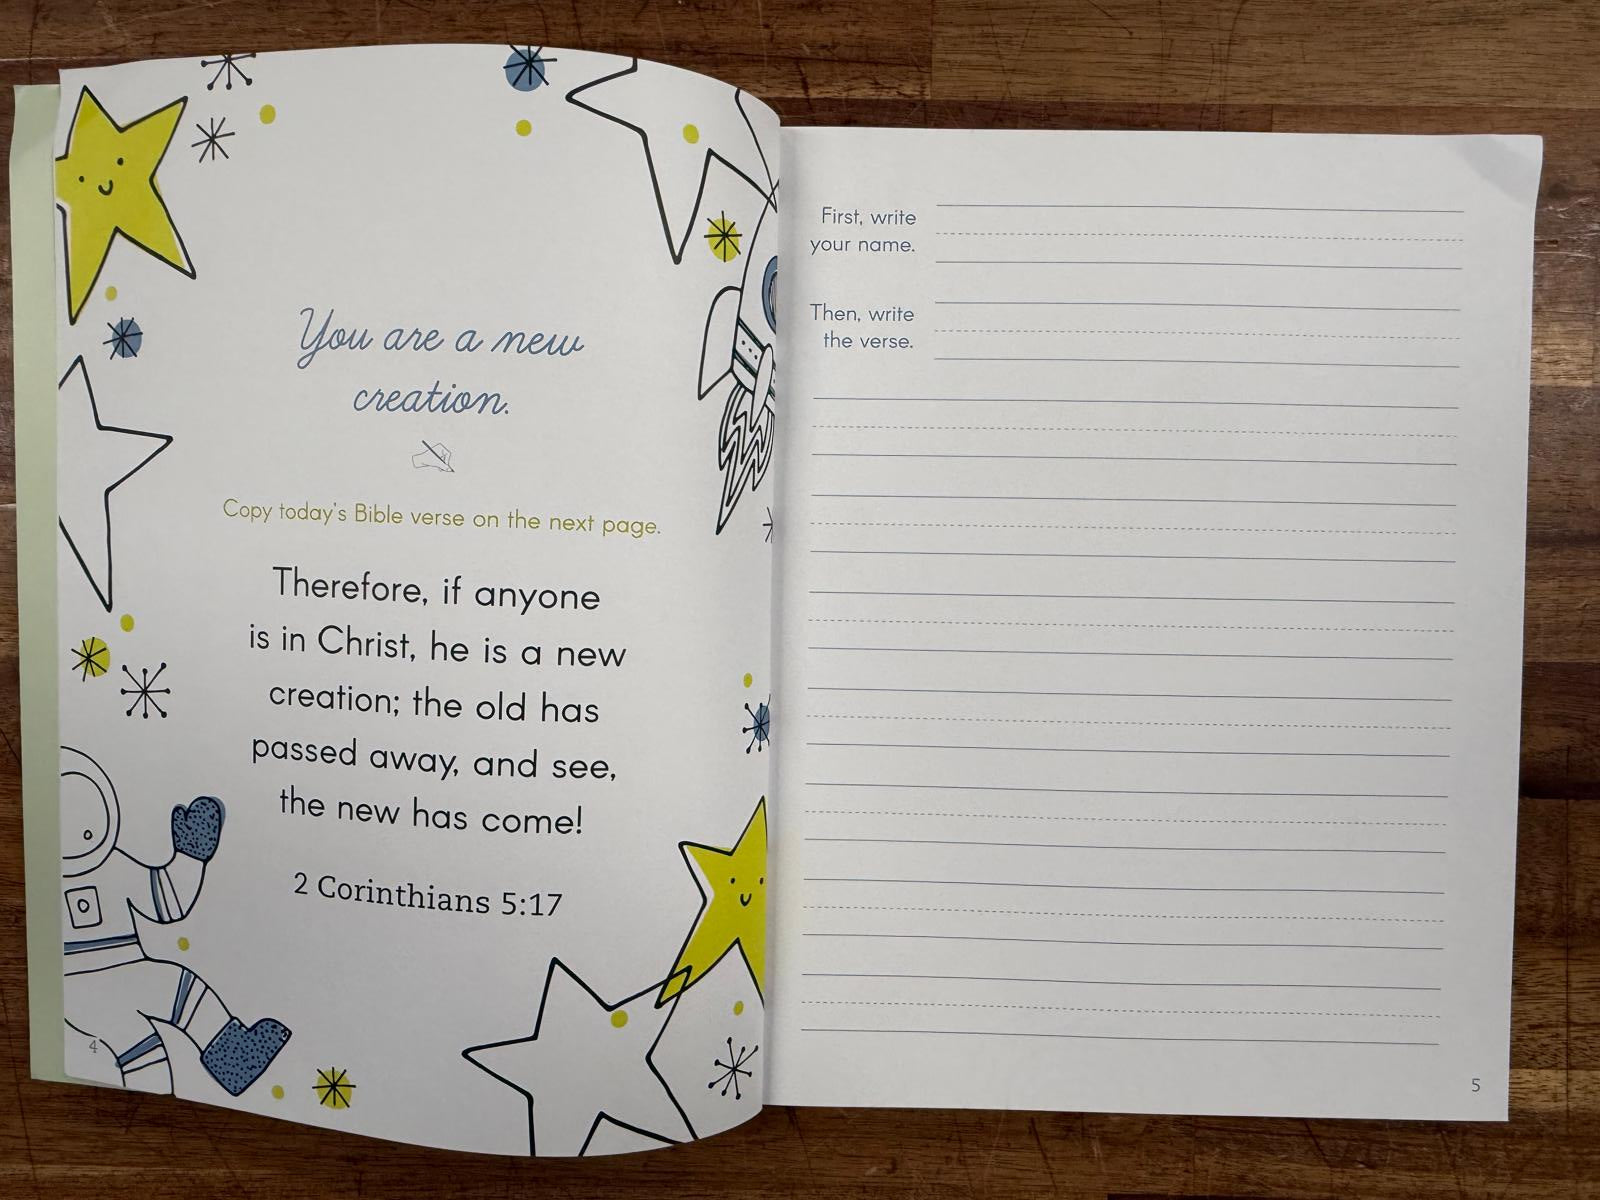 You are a new
creation.
Copy today's Bible verse on the next page.
Therefore, if anyone
is in Christ, he is a new
creation; the old has
passed away, and see,
the new has come!
2 Corinthians 5:17
4
First, write
your name.
Then, write
the verse.
5